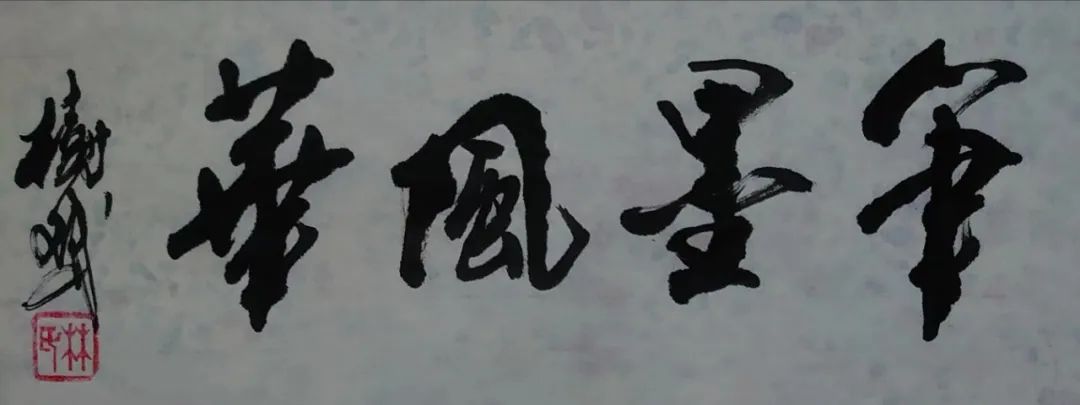 筆墨風華
樹斌
林氏